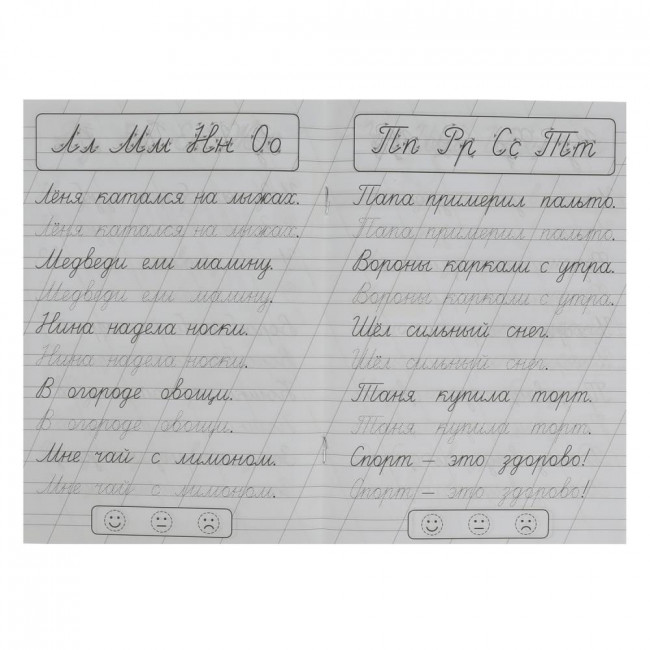 Лл Мм Нн Оо
Лёня катался на лыжах.
Лёня катался на лыжах.
Медведи ели малину.
Медведи ели малину.
Нина надела носки.
Нина надела носки.
В огороде овощи.
В огороде овощи.
Мне чай с лимоном.
Мне чай с лимоном.
Пп Рр Сс Тт
Папа примерил пальто.
Папа примерил пальто.
Вороны каркали с утра.
Вороны каркали с утра.
Шёл сильный снег.
Шёл сильный снег.
Таня купила торт.
Таня купила торт.
Спорт – это здорово!
Спорт – это здорово!